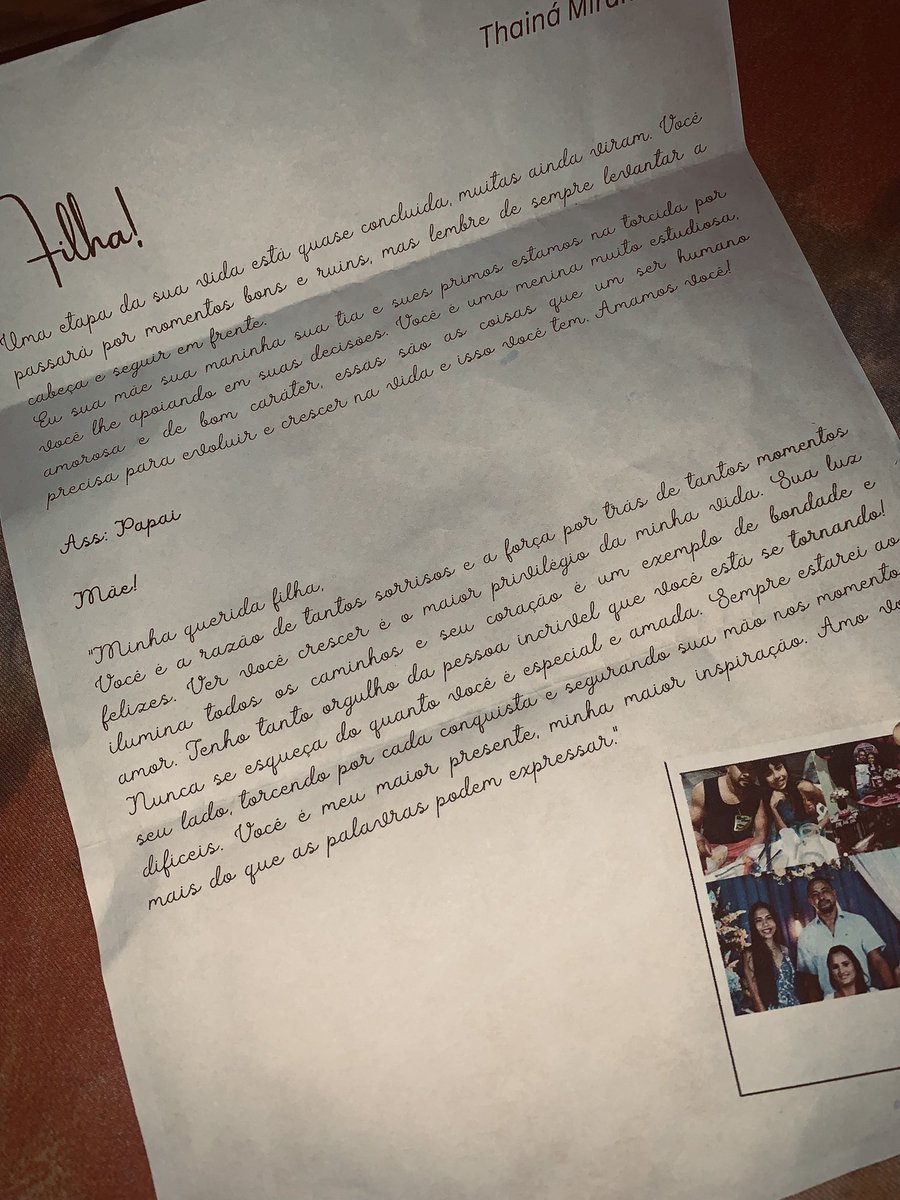 Thainá
Filha!
Uma etapa da sua vida está quase concluida, muitas ainda viram. Você
passará por momentos bons e ruins, mas lembre de sempre levantar a
cabeça e seguir em frente.
Eu sua mãe sua maninha sua tia e sues primos estamos na torcida por
você lhe apoiando em suas decisões. Você é uma menina muito estudiosa,
amorosa e de bom caráter, essas são as coisas que um ser humano
precisa para evoluir e crescer na vida e isso você tem. Amamos você!
Ass: Papai
Mãe!
"Minha querida filha,
Você é a razão de tantos sorrisos e a força por trás de tantos momentos
felizes. Ver você crescer é o maior privilégio da minha vida. Sua luz
ilumina todos os caminhos e seu coração é um exemplo de bondade e
amor. Tenho tanto orgulho da pessoa incrível que você está se tornando!
Nunca se esqueça do quanto você é especial e amada. Sempre estarei ao
seu lado, torcendo por cada conquista e segurando sua mão nos momento
difíceis. Você é meu maior presente, minha maior inspiração. Amo vo
mais do que as palavras podem expressar."